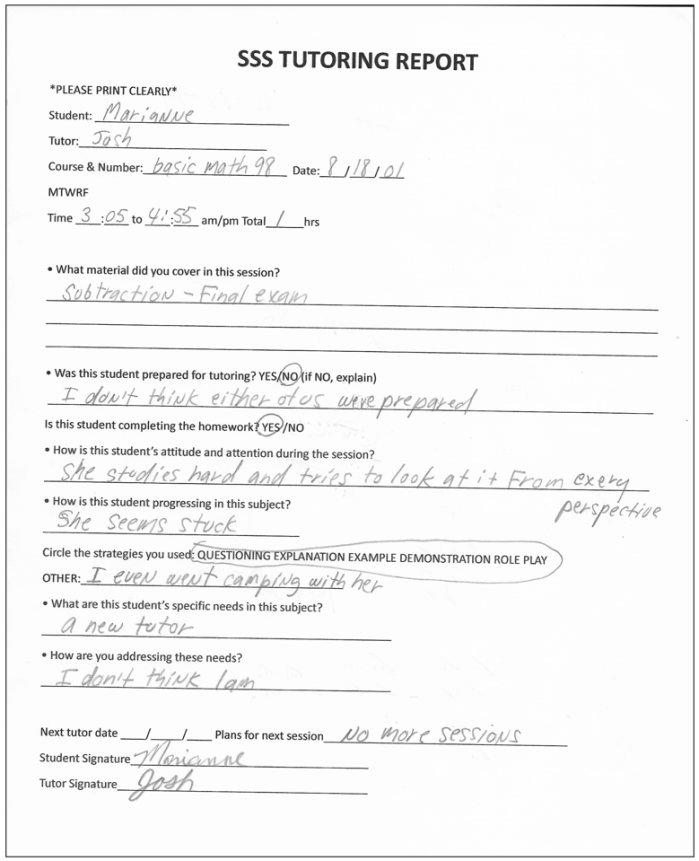 SSS TUTORING REPORT
*PLEASE PRINT CLEARLY*
Student: Marianne
Tutor: Josh
Course & Number: basic math 98 Date: 8/18/01
MTWRF
Time 3:05 to 4:55 am/pm Total 1 hrs
• What material did you cover in this session?
Subtraction - Final exam
• Was this student prepared for tutoring? YES/NO (if NO, explain)
I don't think either of us were prepared
Is this student completing the homework? YES/NO
• How is this student's attitude and attention during the session?
She studies hard and tries to look at it From every
perspective
• How is this student progressing in this subject?
She seems stuck
Circle the strategies you used: QUESTIONING EXPLANATION EXAMPLE DEMONSTRATION ROLE PLAY
OTHER: I even went camping with her
• What are this student's specific needs in this subject?
a new tutor
• How are you addressing these needs?
I don't think I am
Next tutor date ___/___/___ Plans for next session No more sessions
Student Signature Marianne
Tutor Signature Josh